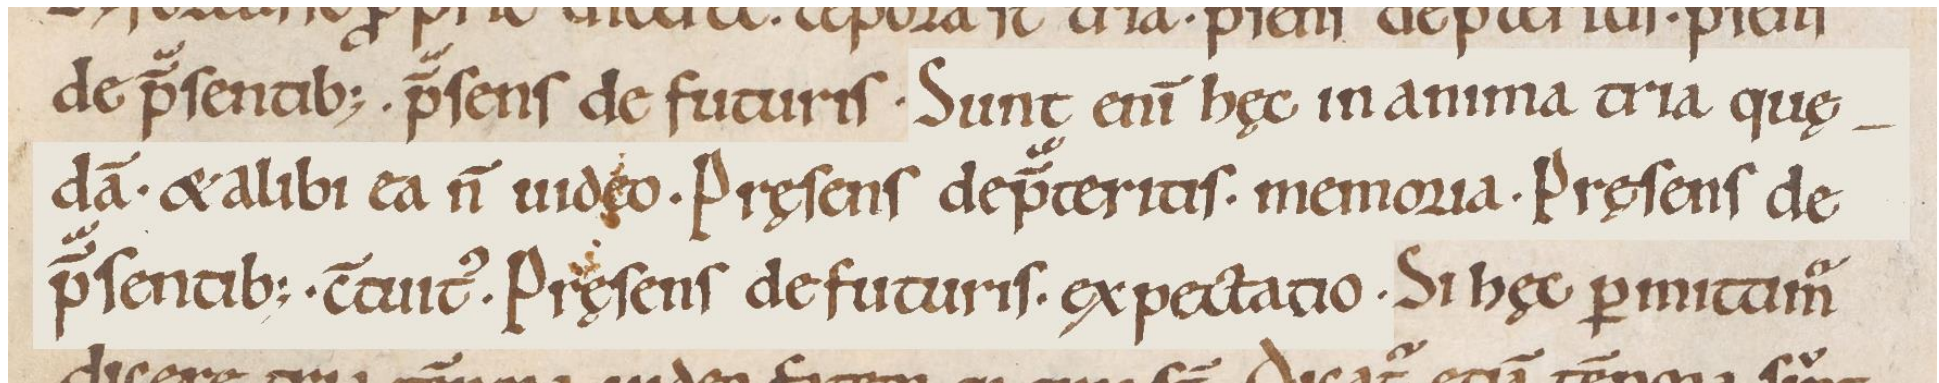 de p̄sentib; . p̄sens de futuris . Sunt eni̅ hęc in anima tria quę_
da̅ . & alibi ea n̅ uideo . Pręsens de p̄teritis . memoria . Pręsens de
p̄sentib; . c̅tuit᾽ . Pręsens de futuris . expectatio . Si hęc ꝑmittim᾽